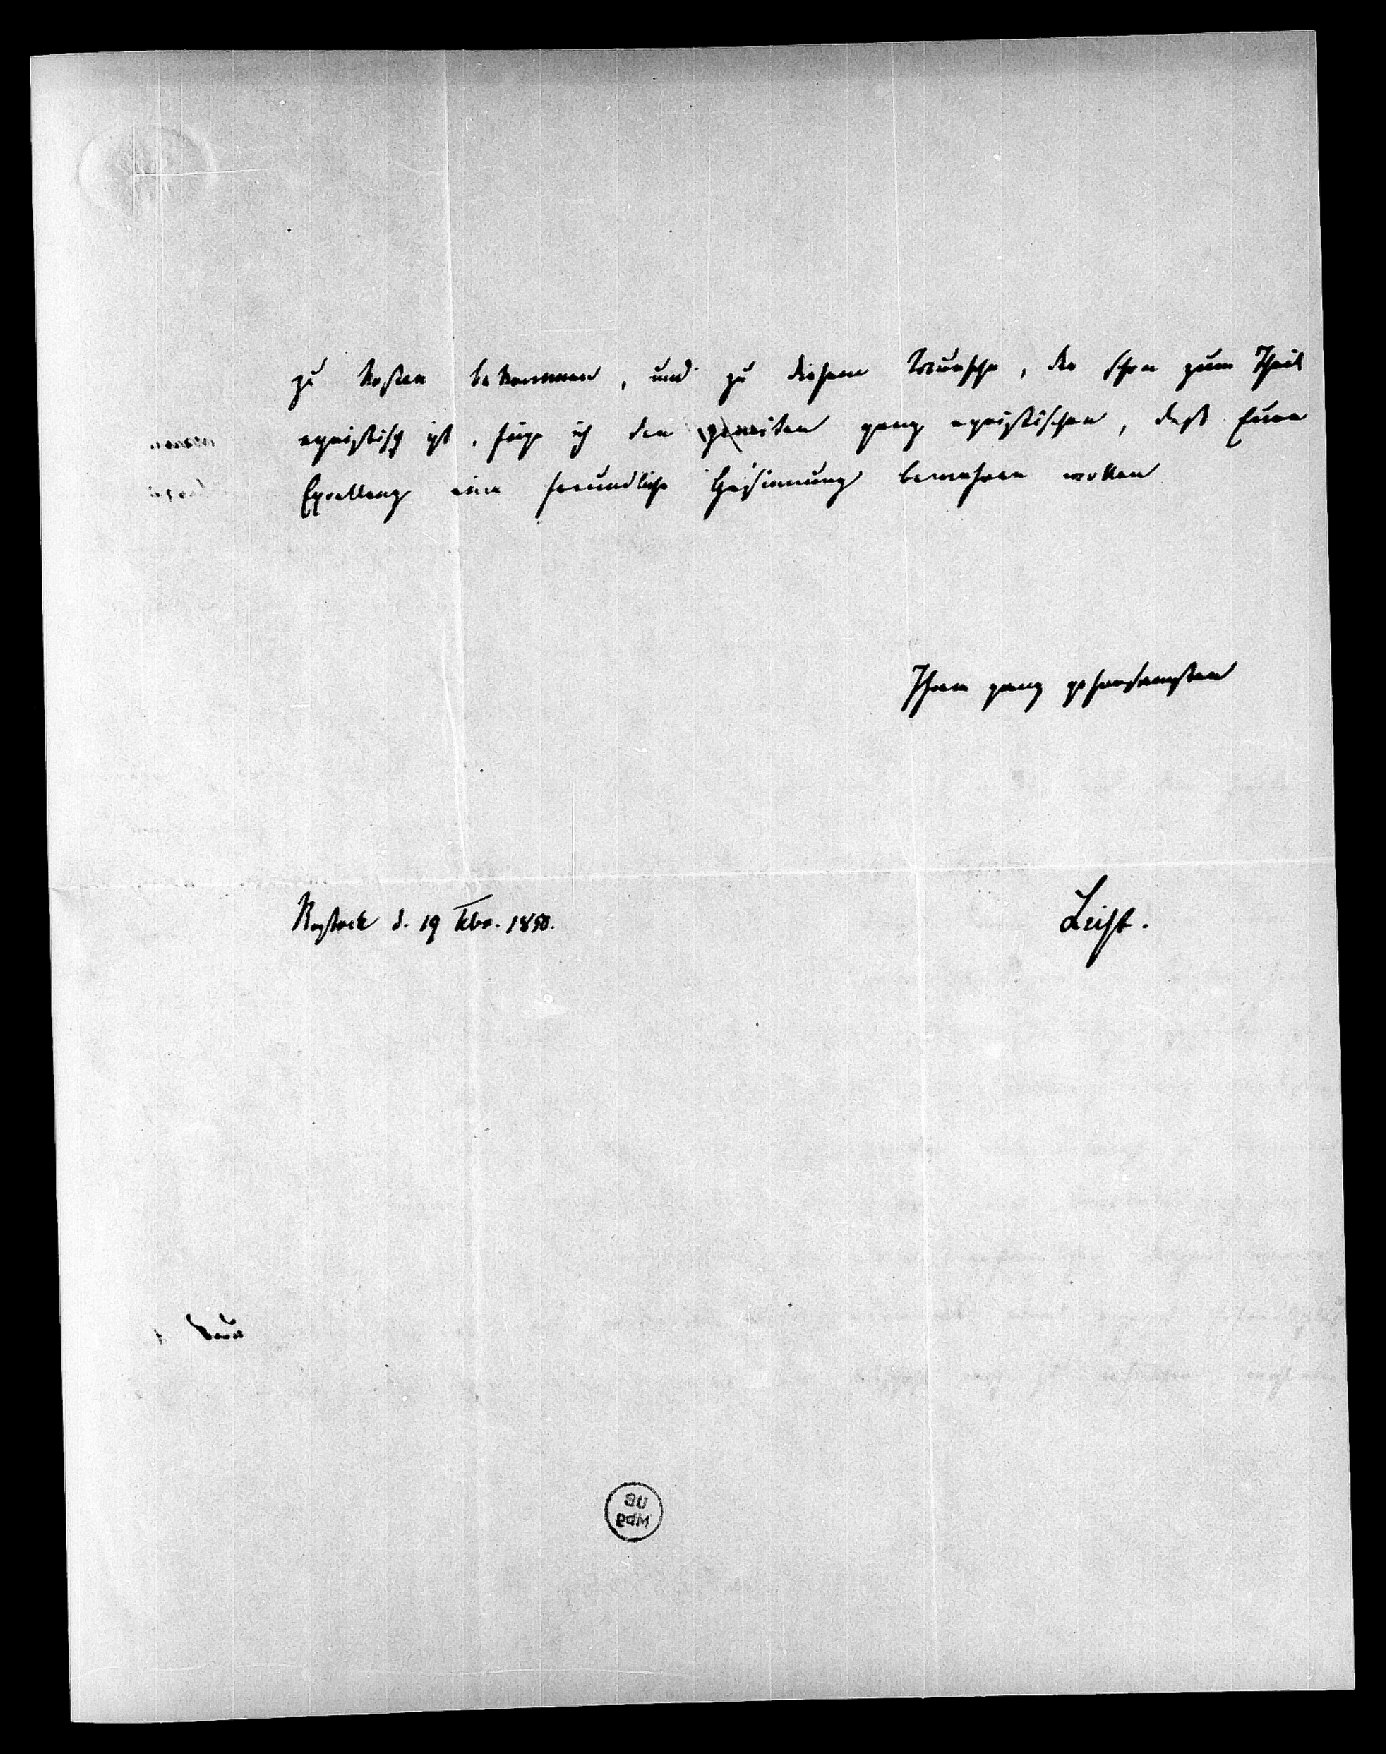 zu kosten bekommen, und zu diesem Wunsche, der schon zum Theil
egoistisch ist, füge ich den zweiten ganz egoistischen, daß Eure
Excellenz eine freundliche Gesinnung bewahren wollen
Ihrem ganz gehorsamsten
Rostock d. 19 Febr. 1850.
Leist.
UB
Mbg